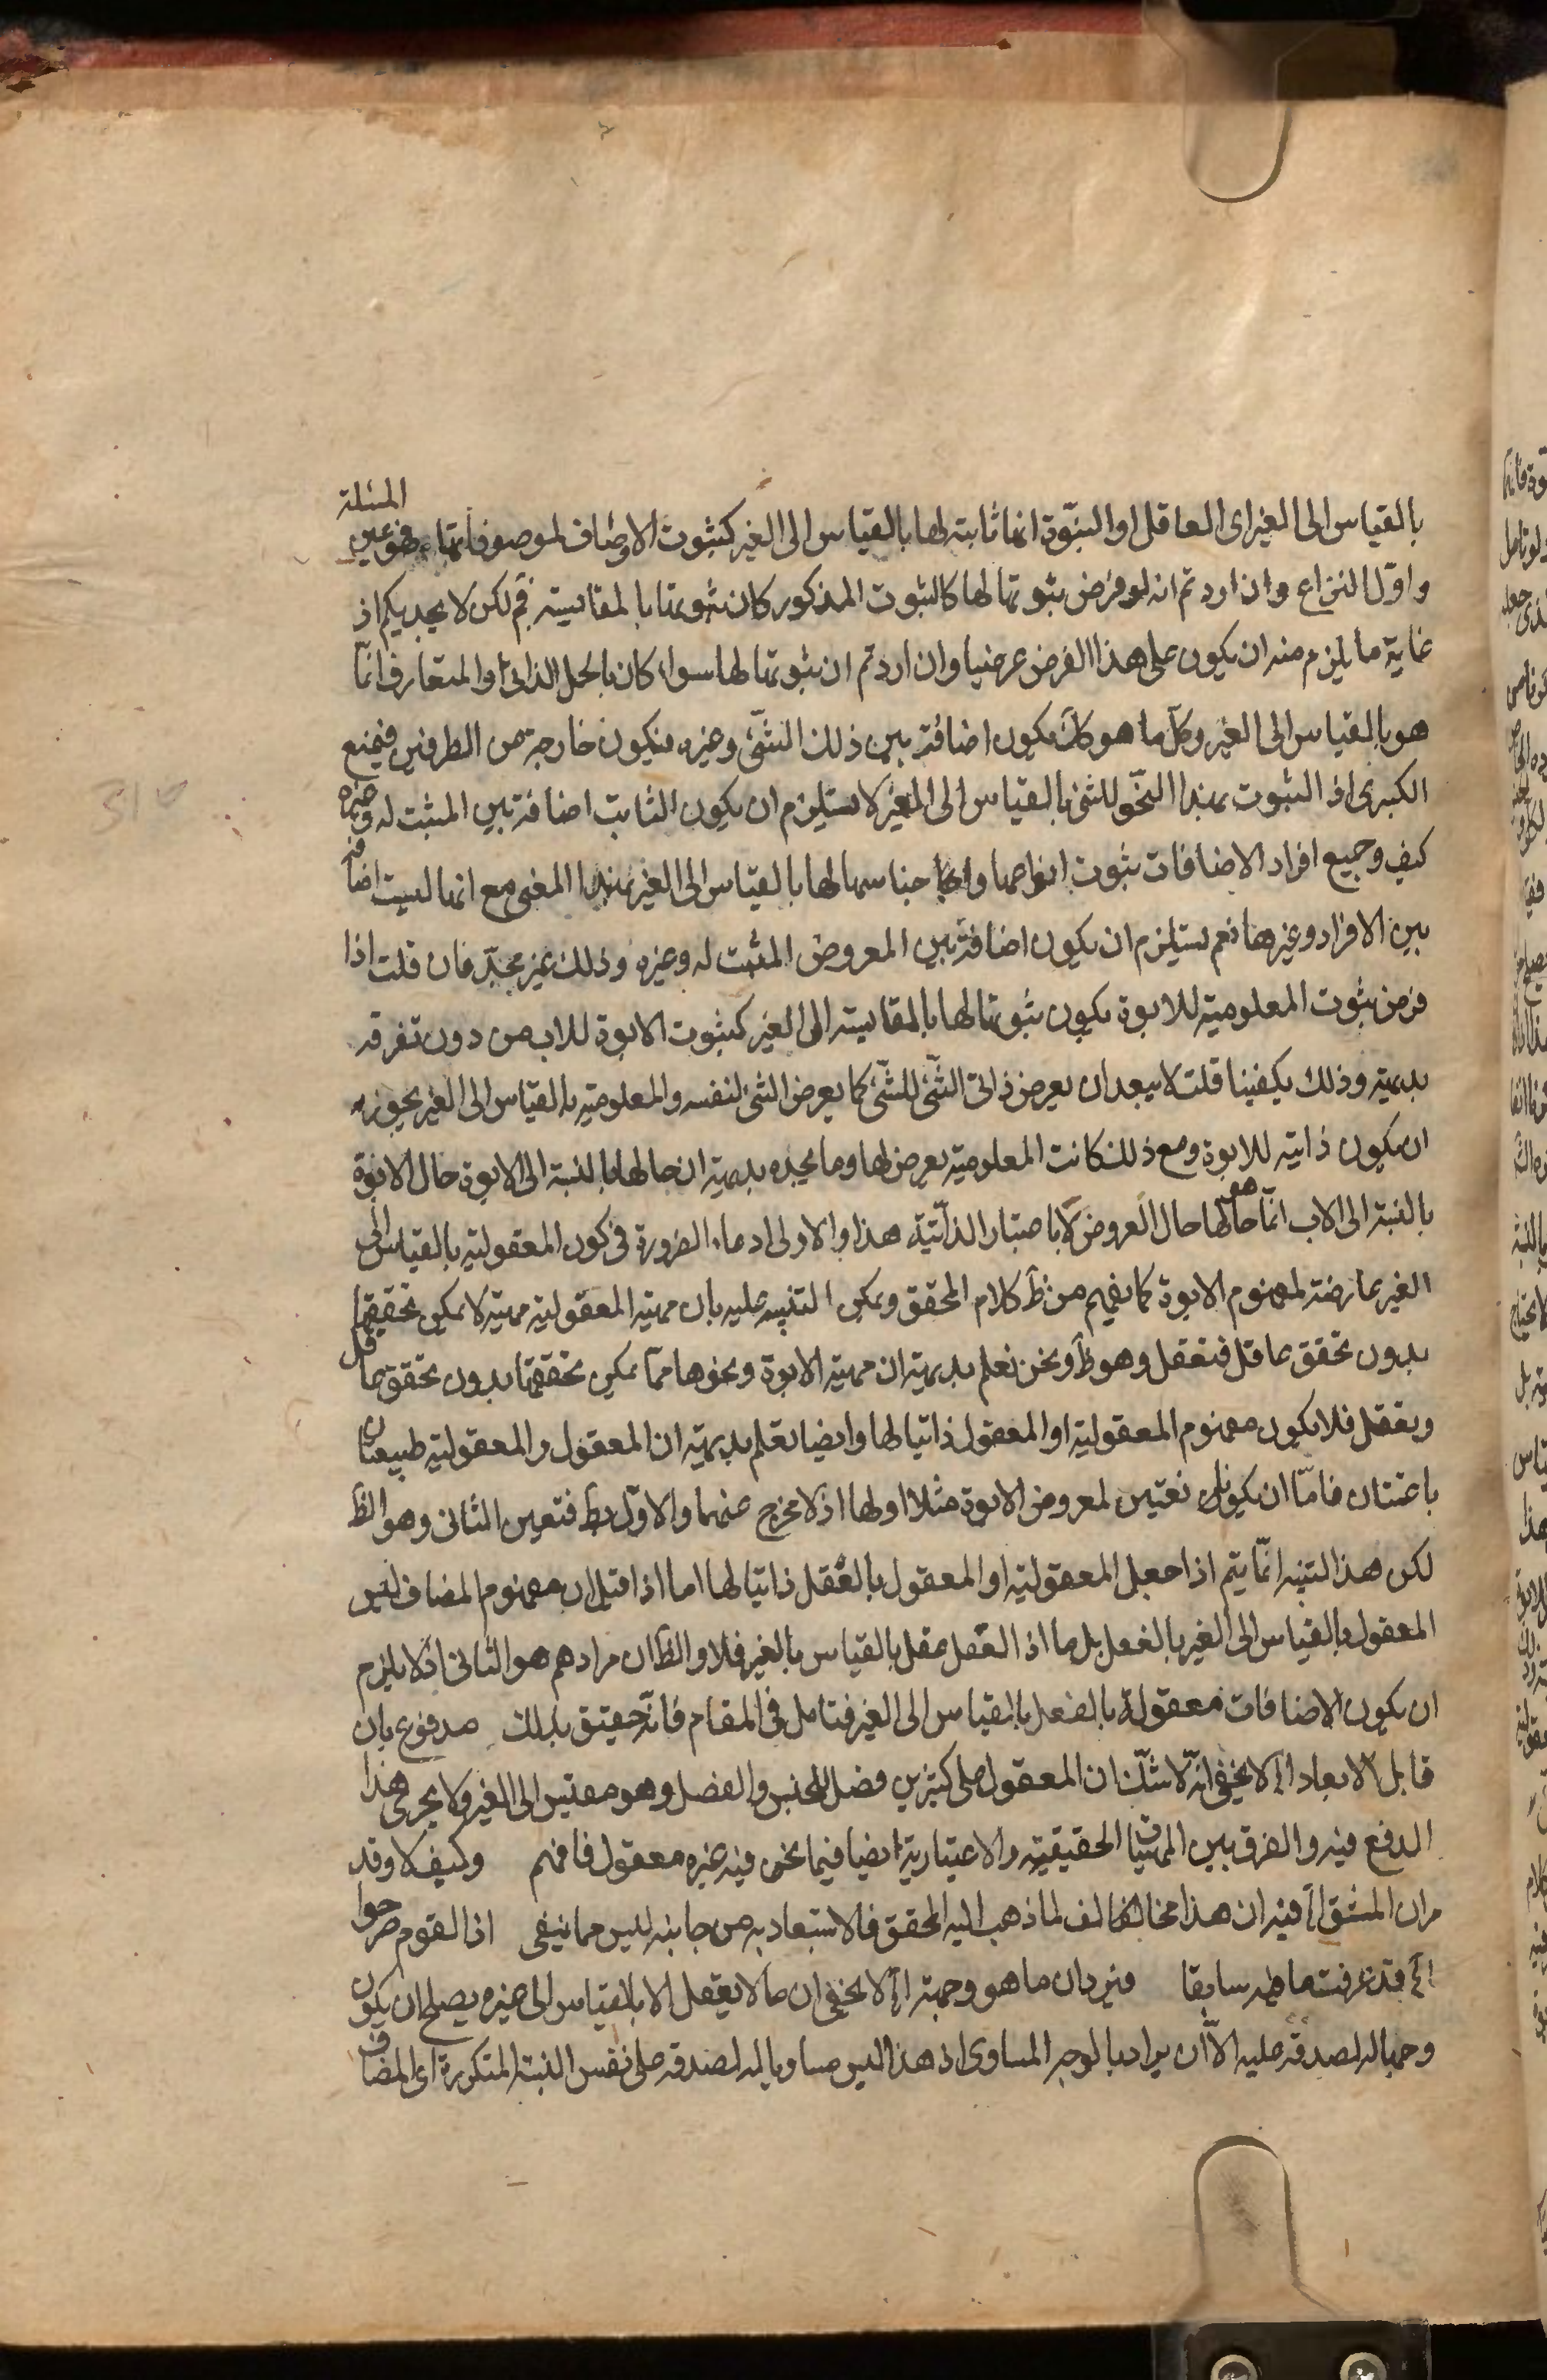 بالقياس الى الغير اى العاقل او البنوّة انما ثابتة لها بالقياس الى الغير كثبوت الاوصاف لموصوفاتها فهو عين المسئلة
واوّل النزاع وان اردتم انه لو فرض ثبوتها لها كالثبوت المذكور كان ثبوتها بالمقايسة فم لكن لا يجديكم اذ
غاية ما يلزم منه ان يكون على هذا الفرض عرضيا وان اردتم ان ثبوتها لها سواء كان بالحمل الذاتى او المتعارف انّما
هو بالقياس الى الغير وكلّ ما هو كك يكون اضافة بين ذلك الشّئ وغيره فيكون خارجة من الطرفين فيمنع
الكبرى اذ الثبوت بهذا النحّو للشئ بالقياس الى الغير لا يستلزم ان يكون الثابت اضافة بين المثبت له وغيره
كيف وجميع افراد الاضافات ثبوت انواعها واجناسها لها بالقياس الى الغير بهذا المعنى مع انها ليست اضافة
بين الافراد وغيرها نعم يستلزم ان يكون اضافة بين المعروض المثبت له وغيره وذلك غير مجدٍ فان قلت اذا
فرض ثبوت المعلومية للابوة يكون ثبوتها لها بالمقايسة الى الغير كثبوت الابوة للاب من دون تفرقة
بديهية وذلك يكفينا قلت لا يبعد ان يعرض ذاتى الشّئ للشّئ كما يعرض الشئ لنفسه والمعلومية بالقياس الى الغير يجوز
ان يكون ذاتية للابوة ومع ذلك كانت المعلومية يعرض لها وما نجده بديهية ان حالها بالنسبة الى الابوة حال الابوة
بالنسبة الى الاب انّما هو حالها حال العروض لا باعتبار الذاتيّة هذا والاولى ادعاء الضرورة فى كون المعقولية بالقياس الى
الغير عارضة لمفهوم الابوة كما يفهم من ظ كلام المحقق ويمكن التنبيه عليه بان مهية المعقولية مهية لا يمكن تحققها
بدون تحقق عاقل فتعقل وهو ظ ونحن نعلم بديهية ان مهية الابوة ونحوها ممّا يمكن تحققها بدون تحقق عاقل
وتعقل فلا يكون مفهوم المعقولية او المعقول ذاتيا لها وايضا نعلم بديهية ان المعقول والمعقولية طبيعتان
ناعتتان فامّا ان يكونا نعتين لمعروض الابوة مثلا او لها اذ لا مخرج عنهما والاوّل بط فتعين الثانى وهو الظ
لكن هذا التنبيه انّما يتم اذا جعل المعقولية او المعقول بالفعل ذاتيا لها اما اذا قيل ان مفهوم المضاف ليس
المعقول بالقياس الى الغير بالفعل بل ما اذا اتعقل عقل بالقياس بالغير فلا والظ ان مرادهم هو الثانى اذ لا يلزم
ان يكون الاضافات معقولة بالفعل بالقياس الى الغير فتامل فى المقام فانّه حقيق بذلك مدفوع بان
قابل الابعاد اه لا يخفى انّه لا شكّ ان المعقول على كثيرين فصل للجنس والفصل وهو مقيس الى الغير ولا يجرى هذا
الدفع فيه والفرق بين المهيات الحقيقية والاعتبارية ايضا فيما نحن فيه غيره معقول فافهم وكيف لا وقد
مر ان المشتق اه فيه ان هذا مخالف لما ذهب اليه المحقق فالاستبعاد به من جانبه ليس مما ينبغى اذ القوم صرحوا
اه قد عرفت ما فيه سابقا فيردان ما هو وجهة اه لا يخفى ان ما لا يعقل الا بالقياس الى غيره يصلح ان يكون
وجها له لصدقه عليه الاّ ان يراد بالوجه المساوى اذ هذا ليس مساويا له لصدقه على نفس النسبة المتكررة اى المضاف